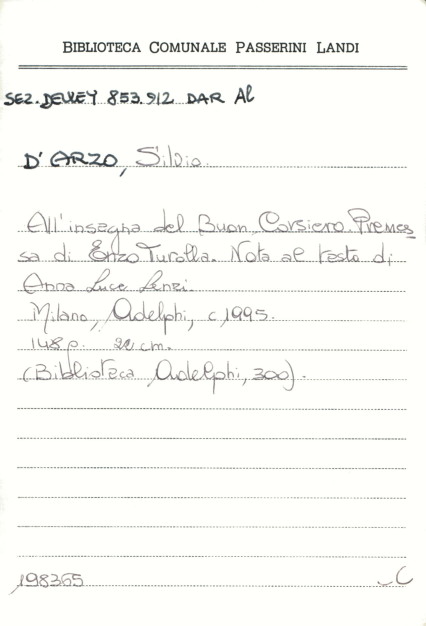 BIBLIOTECA COMUNALE PASSERINI LANDI
SEZ. DEWEY 853.912 DAR Al
D'ARZO, Silvio
All'insegna del Buon Corsiero. Premes
sa di Enzo Turolla. Nota al testo di
Anna Luce Lenzi.
Milano, Adelphi, c1995.
148 p. 22 cm.
(Biblioteca Adelphi, 300).
198365